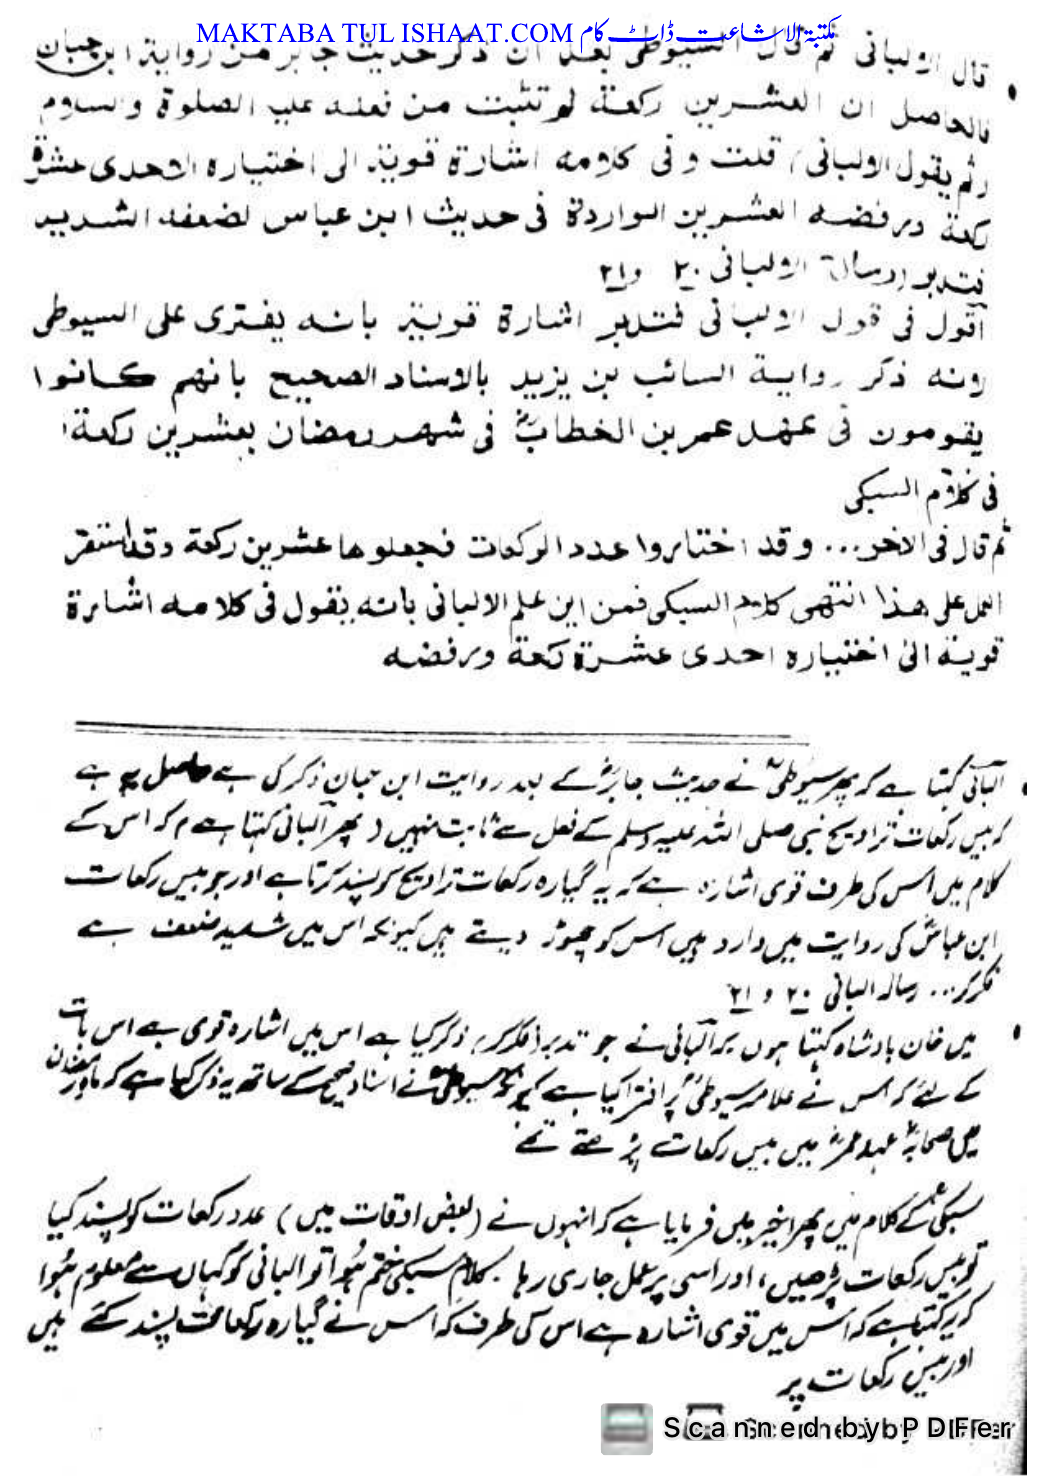 MAKTABA TUL ISHAAT.COM مکتبة الاشاعت ڈاٹ کام
قال الالبانی ثم قال السیوطی بعد ان ذکر حدیث جابر من روایة ابن حبان
فالحاصل ان العشرین رکعة لم تثبت من فعله علیه الصلوة والسلام
(ثم یقول الالبانی) قلت وفی کلامه اشارة قویة الی اختیاره الاحدی عشرة
رکعة ورفضه العشرین الواردة فی حدیث ابن عباس لضعفه الشدید
فتدبر (رسالة الالبانی ۲۰ و ۲۱
اقول فی قول الالبانی فتدبر اشارة قویة بانه یفتری علی السیوطی
لانه ذکر روایة السائب بن یزید بالاسناد الصحیح بانهم کانوا
یقومون فی عهد عمر بن الخطابؓ فی شهر رمضان بعشرین رکعة
فی کلام السبکی
ثم قال فی الاخر... وقد اختاروا عدد الرکعات فجعلوها عشرین رکعة وقد استقر
العمل علی هذا انتهی کلام السبکی فمن این علم الالبانی بانه یقول فی کلامه اشارة
قویة الی اختیاره احدی عشرة رکعة ورفضه
البانی کہتا ہے کہ پھر سیوطیؒ نے حدیث جابرؓ کے بعد روایت ابن حبان ذکر کی ہے حاصل یہ ہے
کہ بیس رکعات تراویح نبی صلی اللہ علیہ وسلم کے فعل سے ثابت نہیں (پھر البانی کہتا ہے) کہ اس کے
کلام میں اس کی طرف قوی اشارہ ہے کہ یہ گیارہ رکعات تراویح کو پسند کرتا ہے اور جو بیس رکعات
ابن عباسؓ کی روایت میں وارد ہیں اس کو چھوڑ دیتے ہیں کیونکہ اس میں شدید ضعف ہے
فکر کر... رسالہ البانی ۲۰ و ۲۱
میں خان بادشاہ کہتا ہوں کہ البانی نے جو تدبر (فکر کر) ذکر کیا ہے اس میں اشارہ قوی ہے اس بات
کے لئے کہ اس نے علامہ سیوطیؒ پر افترا کیا ہے کیونکہ سیوطیؒ نے اسناد صحیح کے ساتھ یہ ذکر کیا ہے کہ ماہ رمضان
میں صحابہؓ عہد عمرؓ میں بیس رکعات پڑھتے تھے
سبکیؒ کے کلام میں پھر اخیر میں فرمایا ہے کہ انہوں نے (بعض اوقات میں) عدد رکعات کو پسند کیا
تو بیس رکعات پڑھیں، اور اسی پر عمل جاری رہا۔ کلام سبکی ختم ہوا تو البانی کو کہاں سے معلوم ہوا
کہ یہ کہتا ہے کہ اس میں قوی اشارہ ہے اس کی طرف کہ اس نے گیارہ رکعات پسند کئے ہیں
اور بیس رکعات پر
Scanned by PDFer